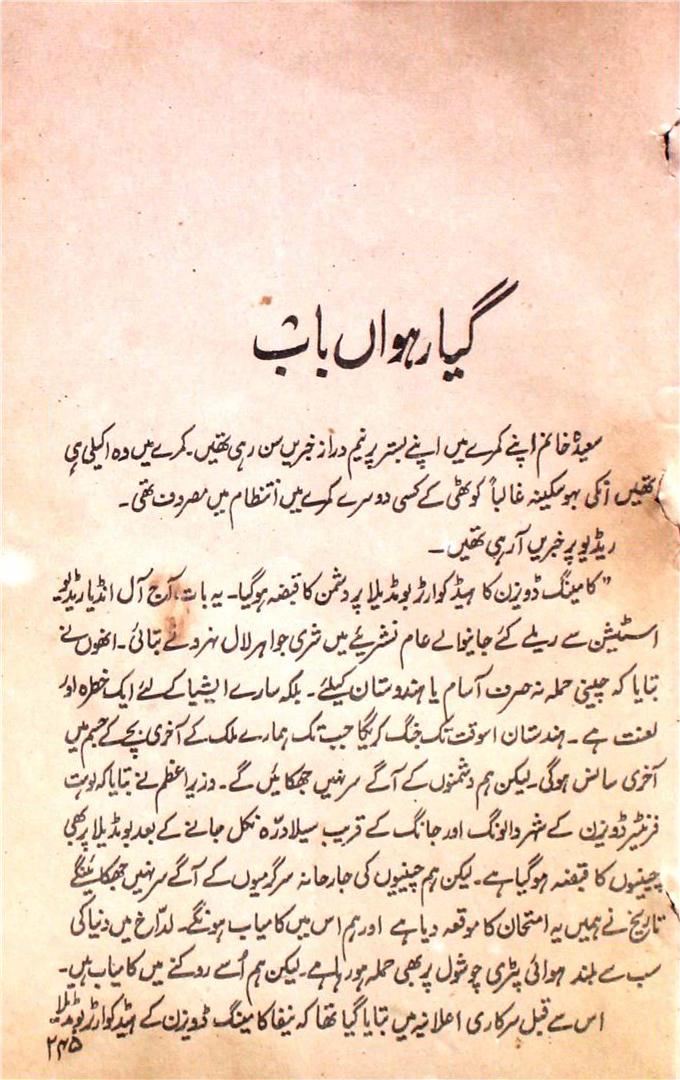 گیارہواں باب
سعیدہ خانم اپنے کمرے میں اپنے بستر پر نیم دراز خبریں سن رہی تھیں۔ کمرے میں وہ اکیلی ہی
تھیں انکی بہو سکینہ غالباً کوٹھی کے کسی دوسرے کمرے میں انتظام میں مصروف تھی۔
ریڈیو پر خبریں آرہی تھیں۔
”کامینگ ڈویزن کا ہیڈ کوارٹر بومڈیلا پر دشمن کا قبضہ ہوگیا۔ یہ بات، آج آل انڈیا ریڈیو
اسٹیشن سے ریلے کئے جانیوالے عام نشریئے میں شری جواہر لال نہرو نے بتائی۔ انھوں نے
بتایا کہ چینی حملہ نہ صرف آسام یا ہندوستان کیلئے۔ بلکہ سارے ایشیا کے لئے ایک خطرہ اور
لعنت ہے۔ ہندستان اسوقت تک جنگ کریگا جب تک ہمارے ملک کے آخری بچے کے جسم میں
آخری سانس ہوگی۔ لیکن ہم دشمنوں کے آگے سر نہیں جھکائیں گے۔ وزیراعظم نے بتایا کہ لوہت
فرنٹیر ڈویزن کے شہر والونگ اور جانگ کے قریب سیلا درّہ نکل جانے کے بعد بومڈیلا پر بھی
چینیوں کا قبضہ ہوگیا ہے۔ لیکن ہم چینیوں کی جارحانہ سرگرمیوں کے آگے سر نہیں جھکائینگے
تاریخ نے ہمیں یہ امتحان کا موقعہ دیا ہے اور ہم اس میں کامیاب ہونگے۔ لدّاخ میں دنیا کی
سب سے بلند ہوائی پٹری چوشول پر بھی حملہ ہورہا ہے۔ لیکن ہم اُسے روکنے میں کامیاب ہیں۔
اس سے قبل سرکاری اعلانیہ میں بتایا گیا تھا کہ نیفا کامینگ ڈویزن کے ہیڈ کوارٹر بومڈیلا
۲۴۵